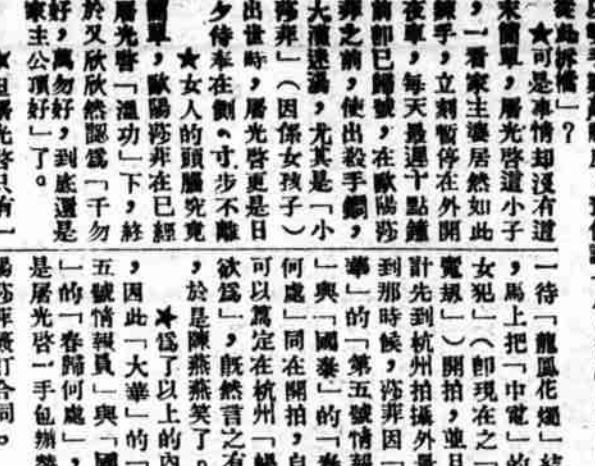 從此拆檔」?
★可是事情却沒有道
末簡單,屠光啓道小子
,一看家主婆居然如此
辣手,立刻暫停在外開
夜車,每天最遲十點鐘
前卽已歸號,在歐陽莎
菲之前,使出殺手鐧,
大灌迷湯,尤其是「小
莎菲」(因係女孩子)
出世時,屠光啓更是日
夕侍奉在側。寸步不離
★女人的頭腦究竟
簡單,歐陽莎菲在已經
屠光啓「溫功」下,終
於又欣欣然認爲「千勿
好,萬勿好,到底還是
家主公頂好」了。
★但屠光啓只有一
一待「龍鳳花燭」結
,馬上把「中電」的
女犯」(卽現在之「
」)開拍,並且
計先到杭州拍攝外景
到那時候,莎菲因「
華」的「第五號情報
」與「國泰」的「春
何處」同在開拍,自
可以篤定在杭州「
欲爲」,旣然言之有
,於是陳燕燕笑了。
★爲了以上的內
,因此「大華」的「
五號情報員」與「國
」的「春歸何處」,
是屠光啓一手包辦
陽莎菲簽訂合同。